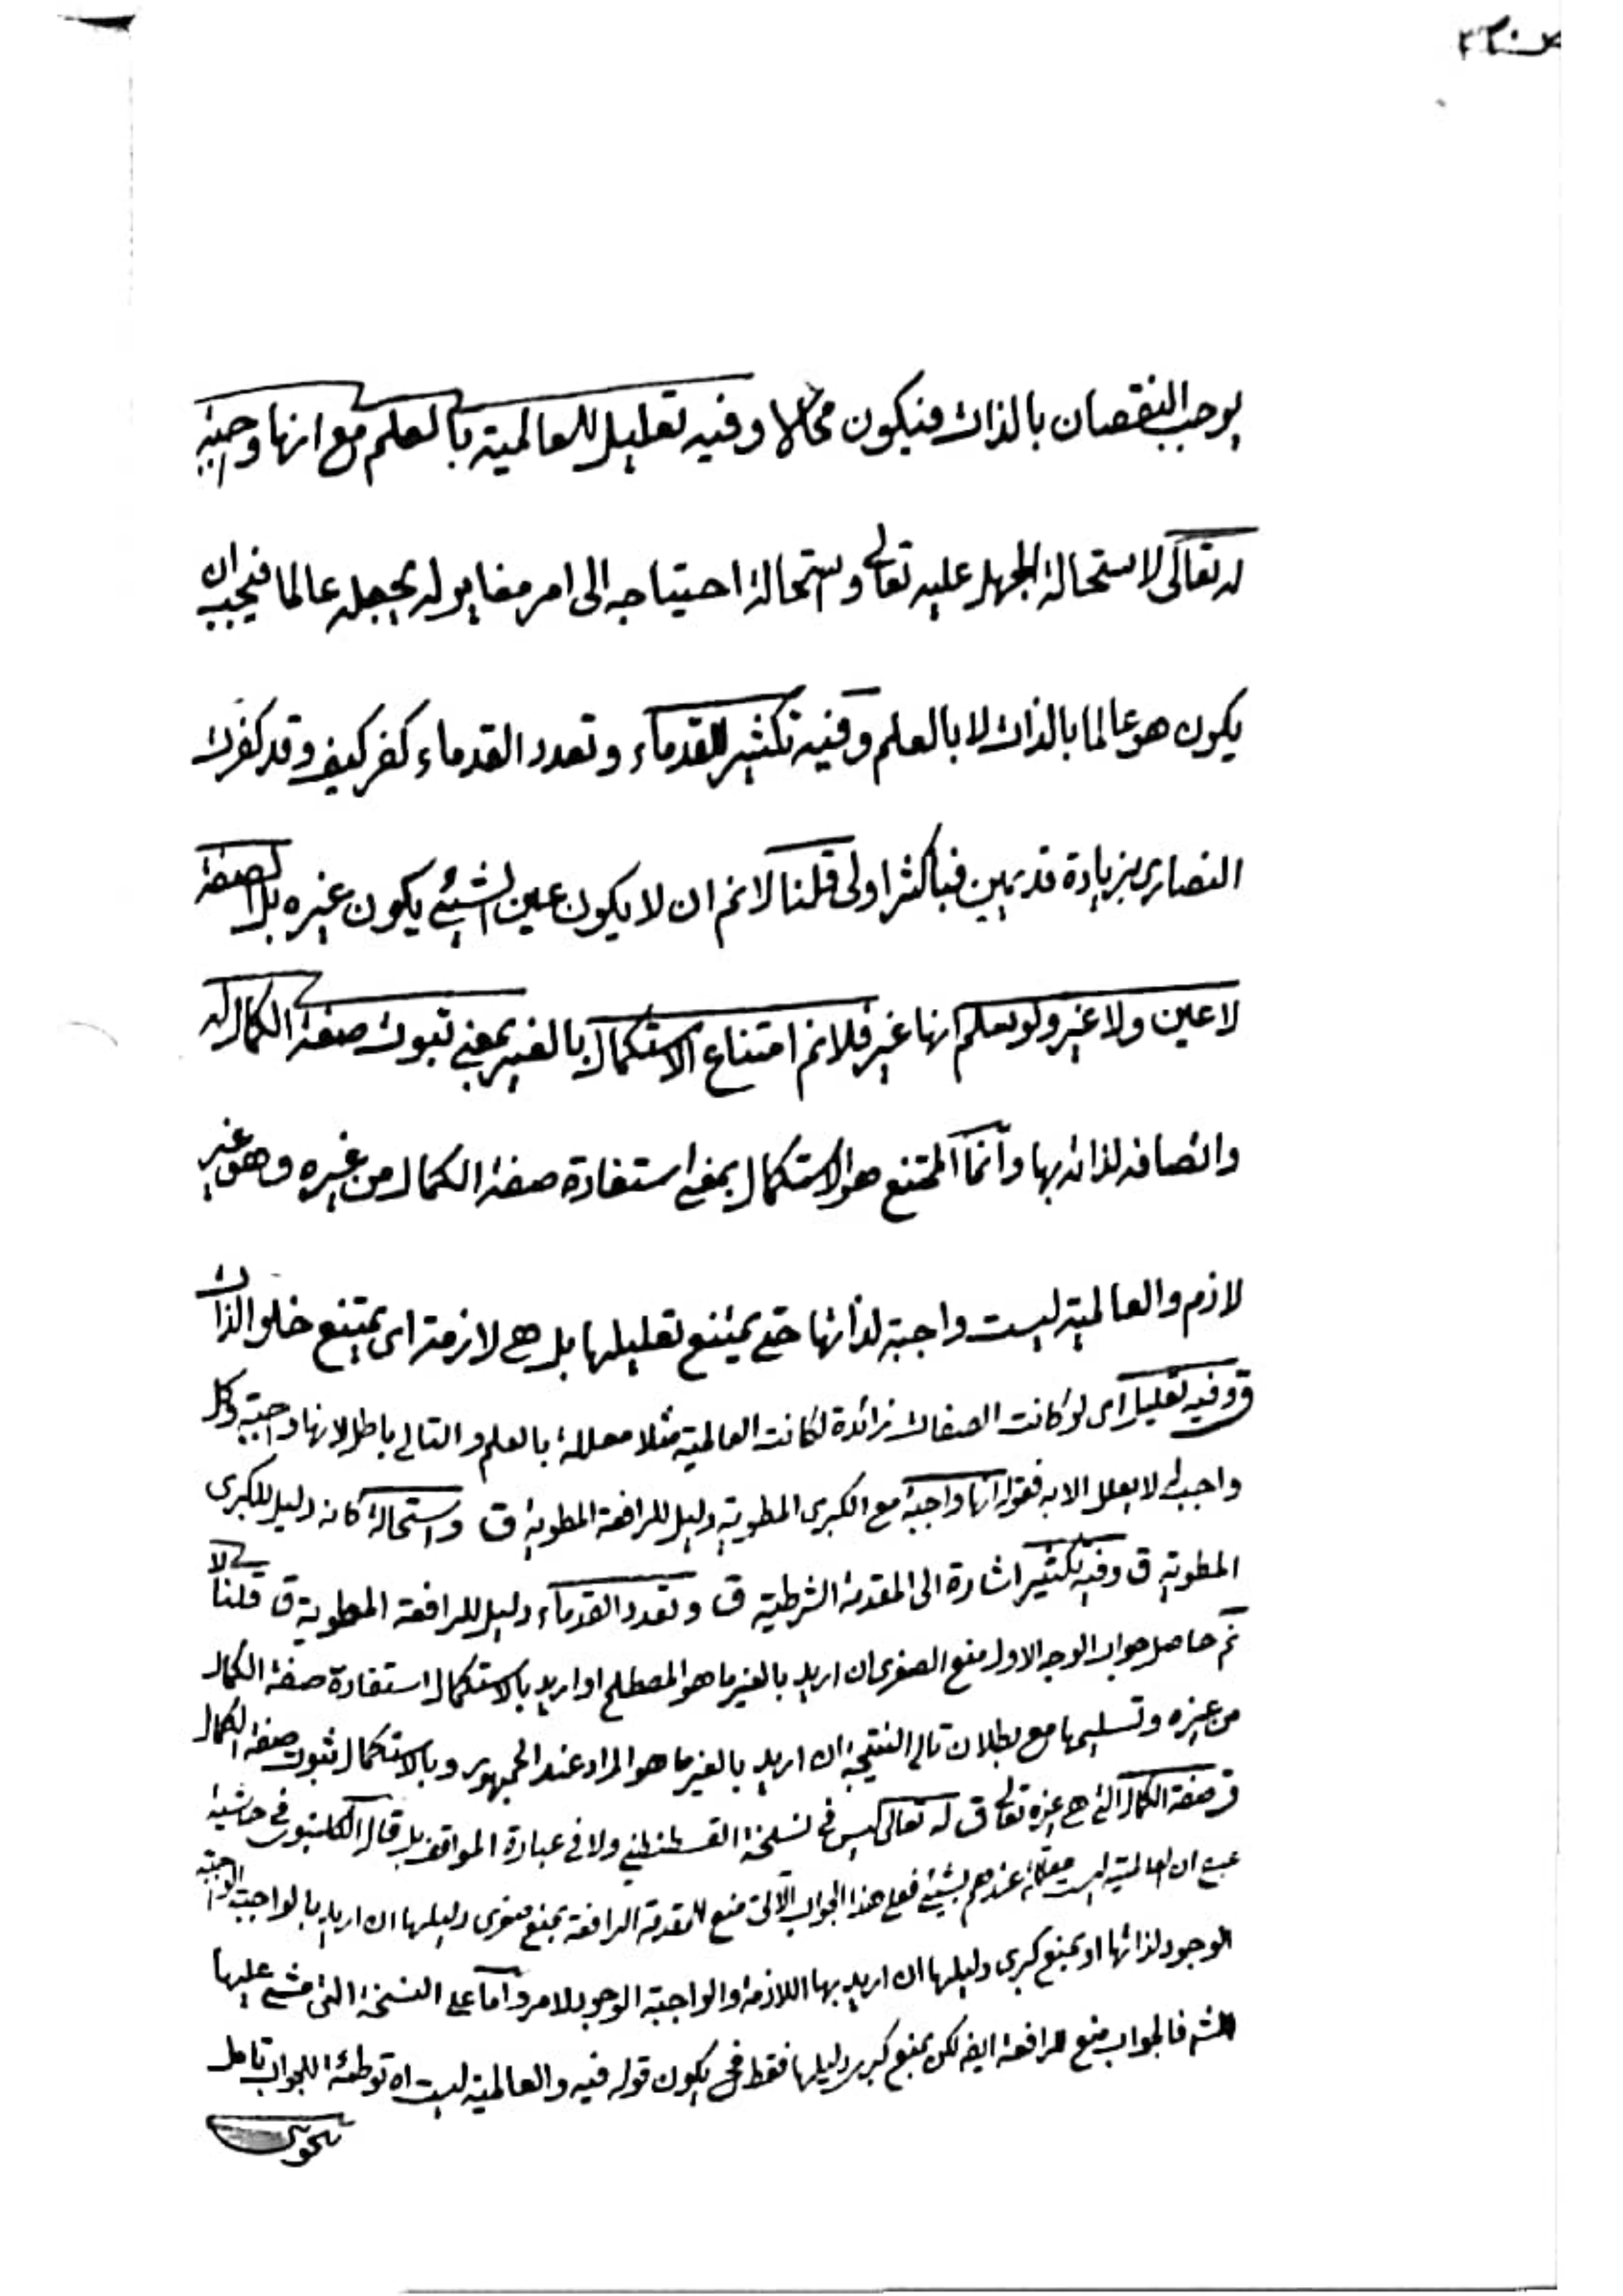 يوجب النقصان بالذات فيكون محالا وفيه تعليل للعالمية بالعلم مع انها واجبة
له تعالى لاستحالة الجهل عليه تعالى واستحالة احتياجه الى امر مغاير له يجعله عالما فيجب ان
يكون هو عالما بالذات لا بالعلم وفيه تكثير للقدماء وتعدد القدماء كفر كيف وقد كفرت
النصارى بزيادة قديمين فبأكثر اولى قلنا لانم ان لا يكون عين الشيئ يكون غيره بل الصفة
لا عين ولا غير ولو يعلم انها غير فلانم امتناع الاستكمال بالغير بمعنى ثبوت صفة الكمال له
واتصافه لذاته بها وانما الممتنع هو الاستكمال بمعنى استفادة صفة الكمال من غيره وهو غير
لازم والعالمية ليست واجبة لذاتها حتى يمتنع تعليلها بل هى لازمة اى يمتنع خلو الذات
ق وفيه تعليل اى لو كانت الصفات زائدة لكانت العالمية مثلا معللة بالعلم والتالى باطل لانها واجبة وكل
واجب لا يعلل الا به فقوله انها واجبة مع الكبرى المطوية دليل للرافعة المطوية ق واستحالة كانه دليل للكبرى
المطوية ق وفيه تكثير اشارة الى المقدمة الشرطية ق وتعدد القدماء دليل للرافعة المطوية ق قلنا لا
نم حاصل جواب الوجه الاول منع الصغرى ان اريد بالغير ما هو المصطلح او اريد بالاستكمال استفادة صفة الكمال
من غيره وتسليمها مع بطلان تالى النتيجة ان اريد بالغير ما هو المراد عند الجمهور وبالاستكمال ثبوت صفة الكمال
ق صفة الكمال التى هى غيره تعالى ق له تعالى ليس فى نسخة القسطنطنى ولا فى عبارة المواقف بل قال الكلنبوى فى حاشية
ان العالمية ليست عندهم بشيئ فعلى هذا الجواب الآتى منع للمقدمة الرافعة بمنع صغرى دليلها ان اريد بالواجب الواجبة
الوجود لذاتها او بمنع كبرى دليلها ان اريد بها اللازمة والواجبة الوجود لامر واما على النسخة التى مشى عليها
فالجواب منع الرافعة ايضا لكن بمنع كبرى دليلها فقط فح يكون قوله فيه والعالمية ليست اه توطئة للجواب تامل